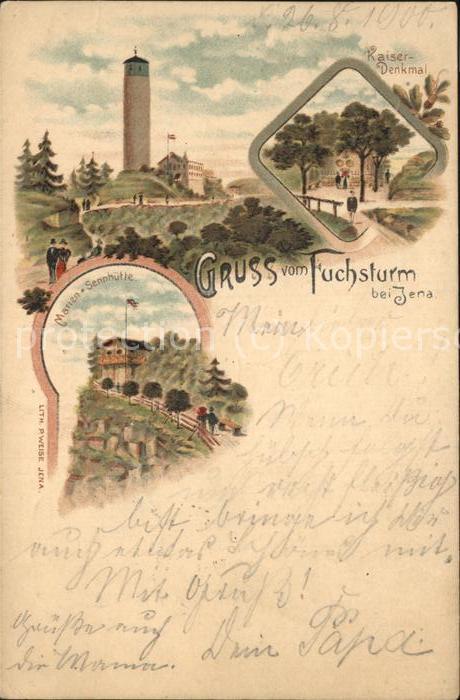 26.8.1900.
Kaiser-
Denkmal
GRUSS vom Fuchsturm
bei Jena.
Marien-Sennhütte
LITH. P. WEISE, JENA.
protection (C) Kopiersc
Mein
Wenn du
recht fleißig
bist, bringe ich dir
auch etwas Schönes mit.
Mit Gruß!
Dein Papa
Grüße auch
die Mama.